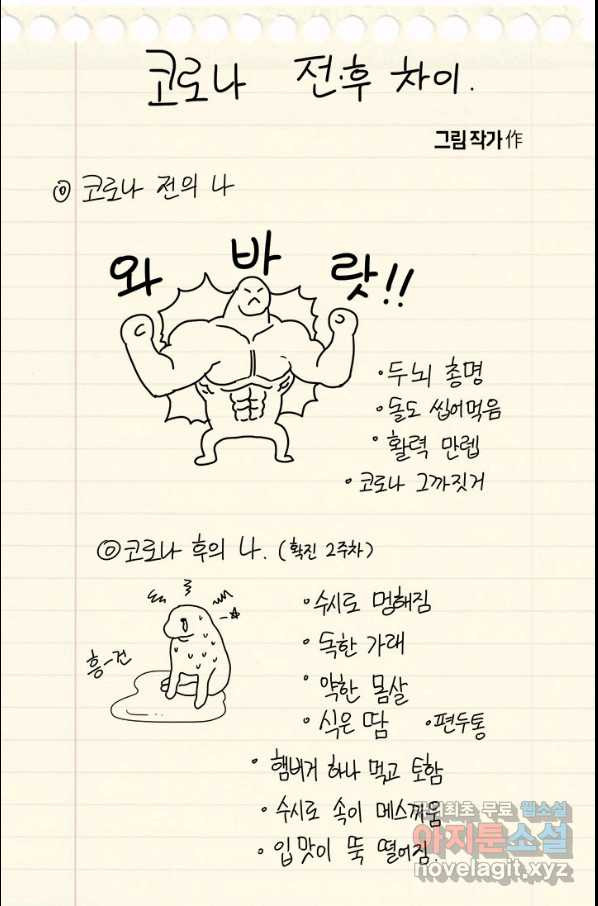 코로나 전·후 차이.
그림작가作
◎ 코로나 전의 나
와 바 랏!!
·두뇌 총명
·돌도 씹어먹음
·활력 만렙
·코로나 그까짓거
◎ 코로나 후의 나. (확진 2주차)
·수시로 멍해짐
흥-건
·독한 가래
·약한 몸살
·식은 땀 ·편두통
·햄버거 하나 먹고 토함
·수시로 속이 메스꺼움
·입맛이 뚝 떨어짐.
국내최초 무료 웹소설
아지툰소설
novelagit.xyz